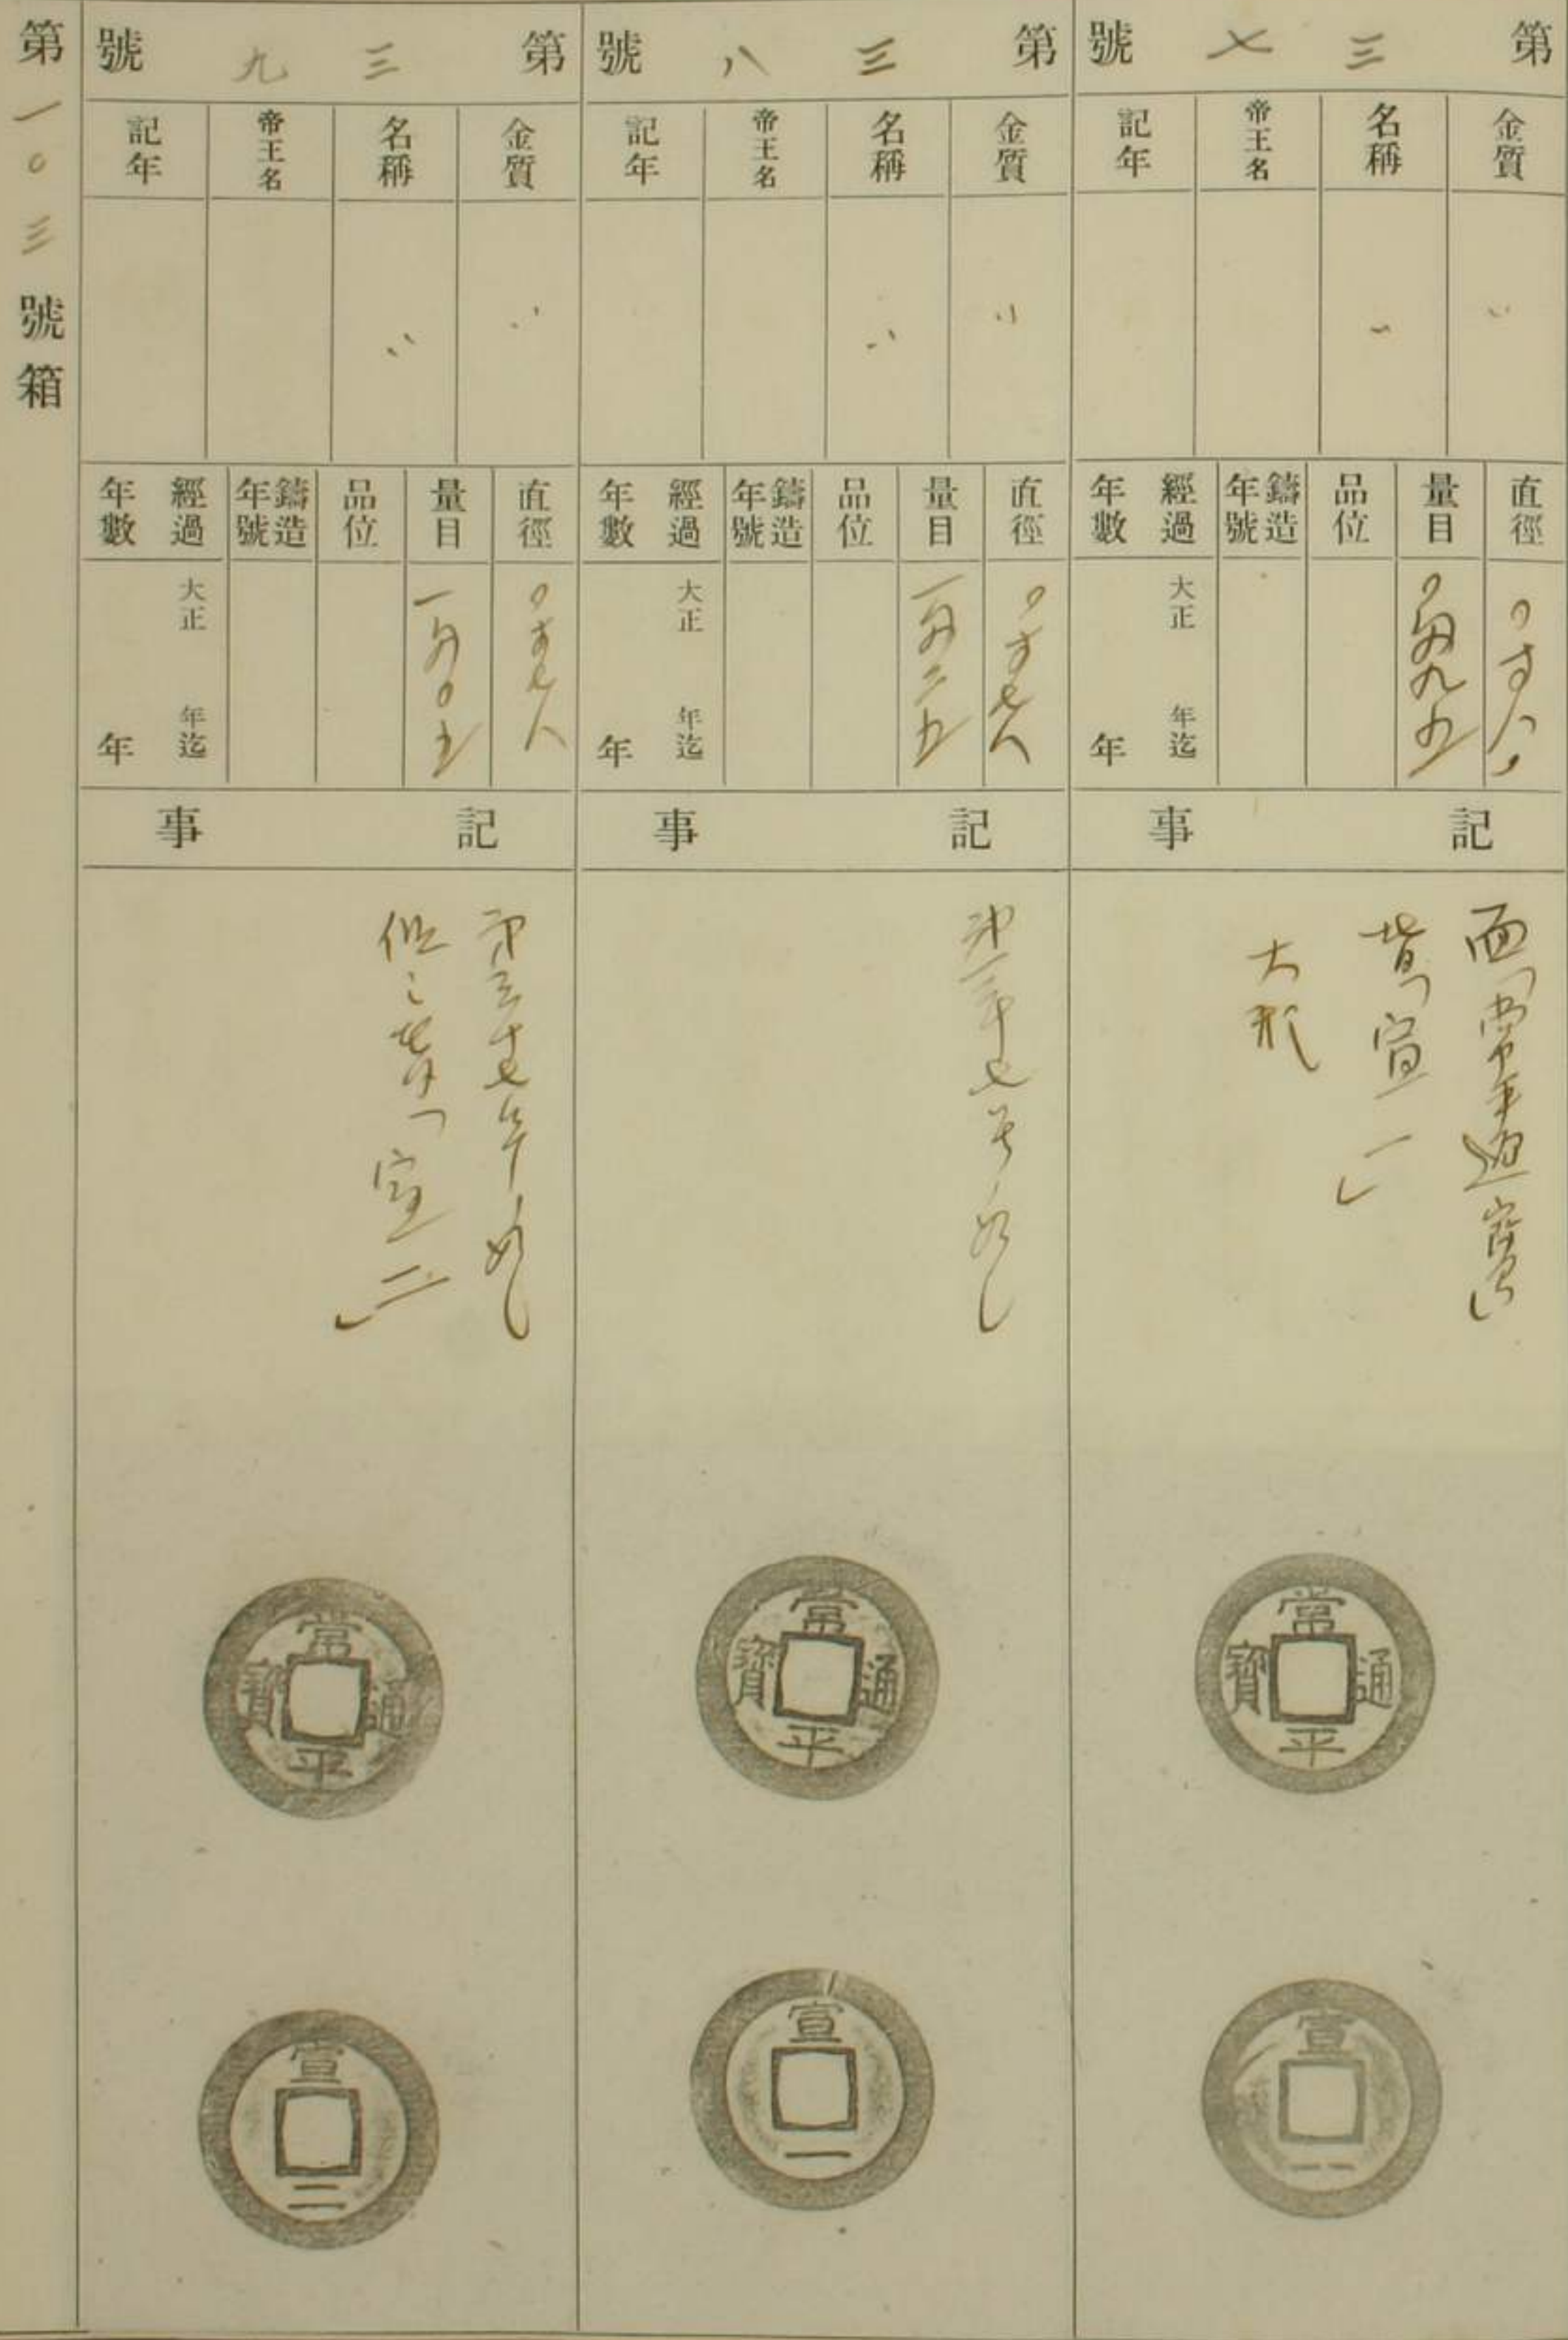 第三七號
金質
名稱
帝王名
記年
〃
〃
直徑
量目
品位
鑄造年號
經過年數
〇寸八〇
〇匁九五
大正 年迄
年
記事
面「常平通寶」
背「宣一」
大形
常平通寶
宣一
第三八號
金質
名稱
帝王名
記年
〃
〃
直徑
量目
品位
鑄造年號
經過年數
〇寸七八
一匁二五
大正 年迄
年
記事
第三十七号ノ如シ
常平通寶
宣一
第三九號
金質
名稱
帝王名
記年
〃
〃
直徑
量目
品位
鑄造年號
經過年數
〇寸七八
一匁〇五
大正 年迄
年
記事
第三十七号ノ如シ
但シ背「宣二」
常平通寶
宣二
第一〇三號箱